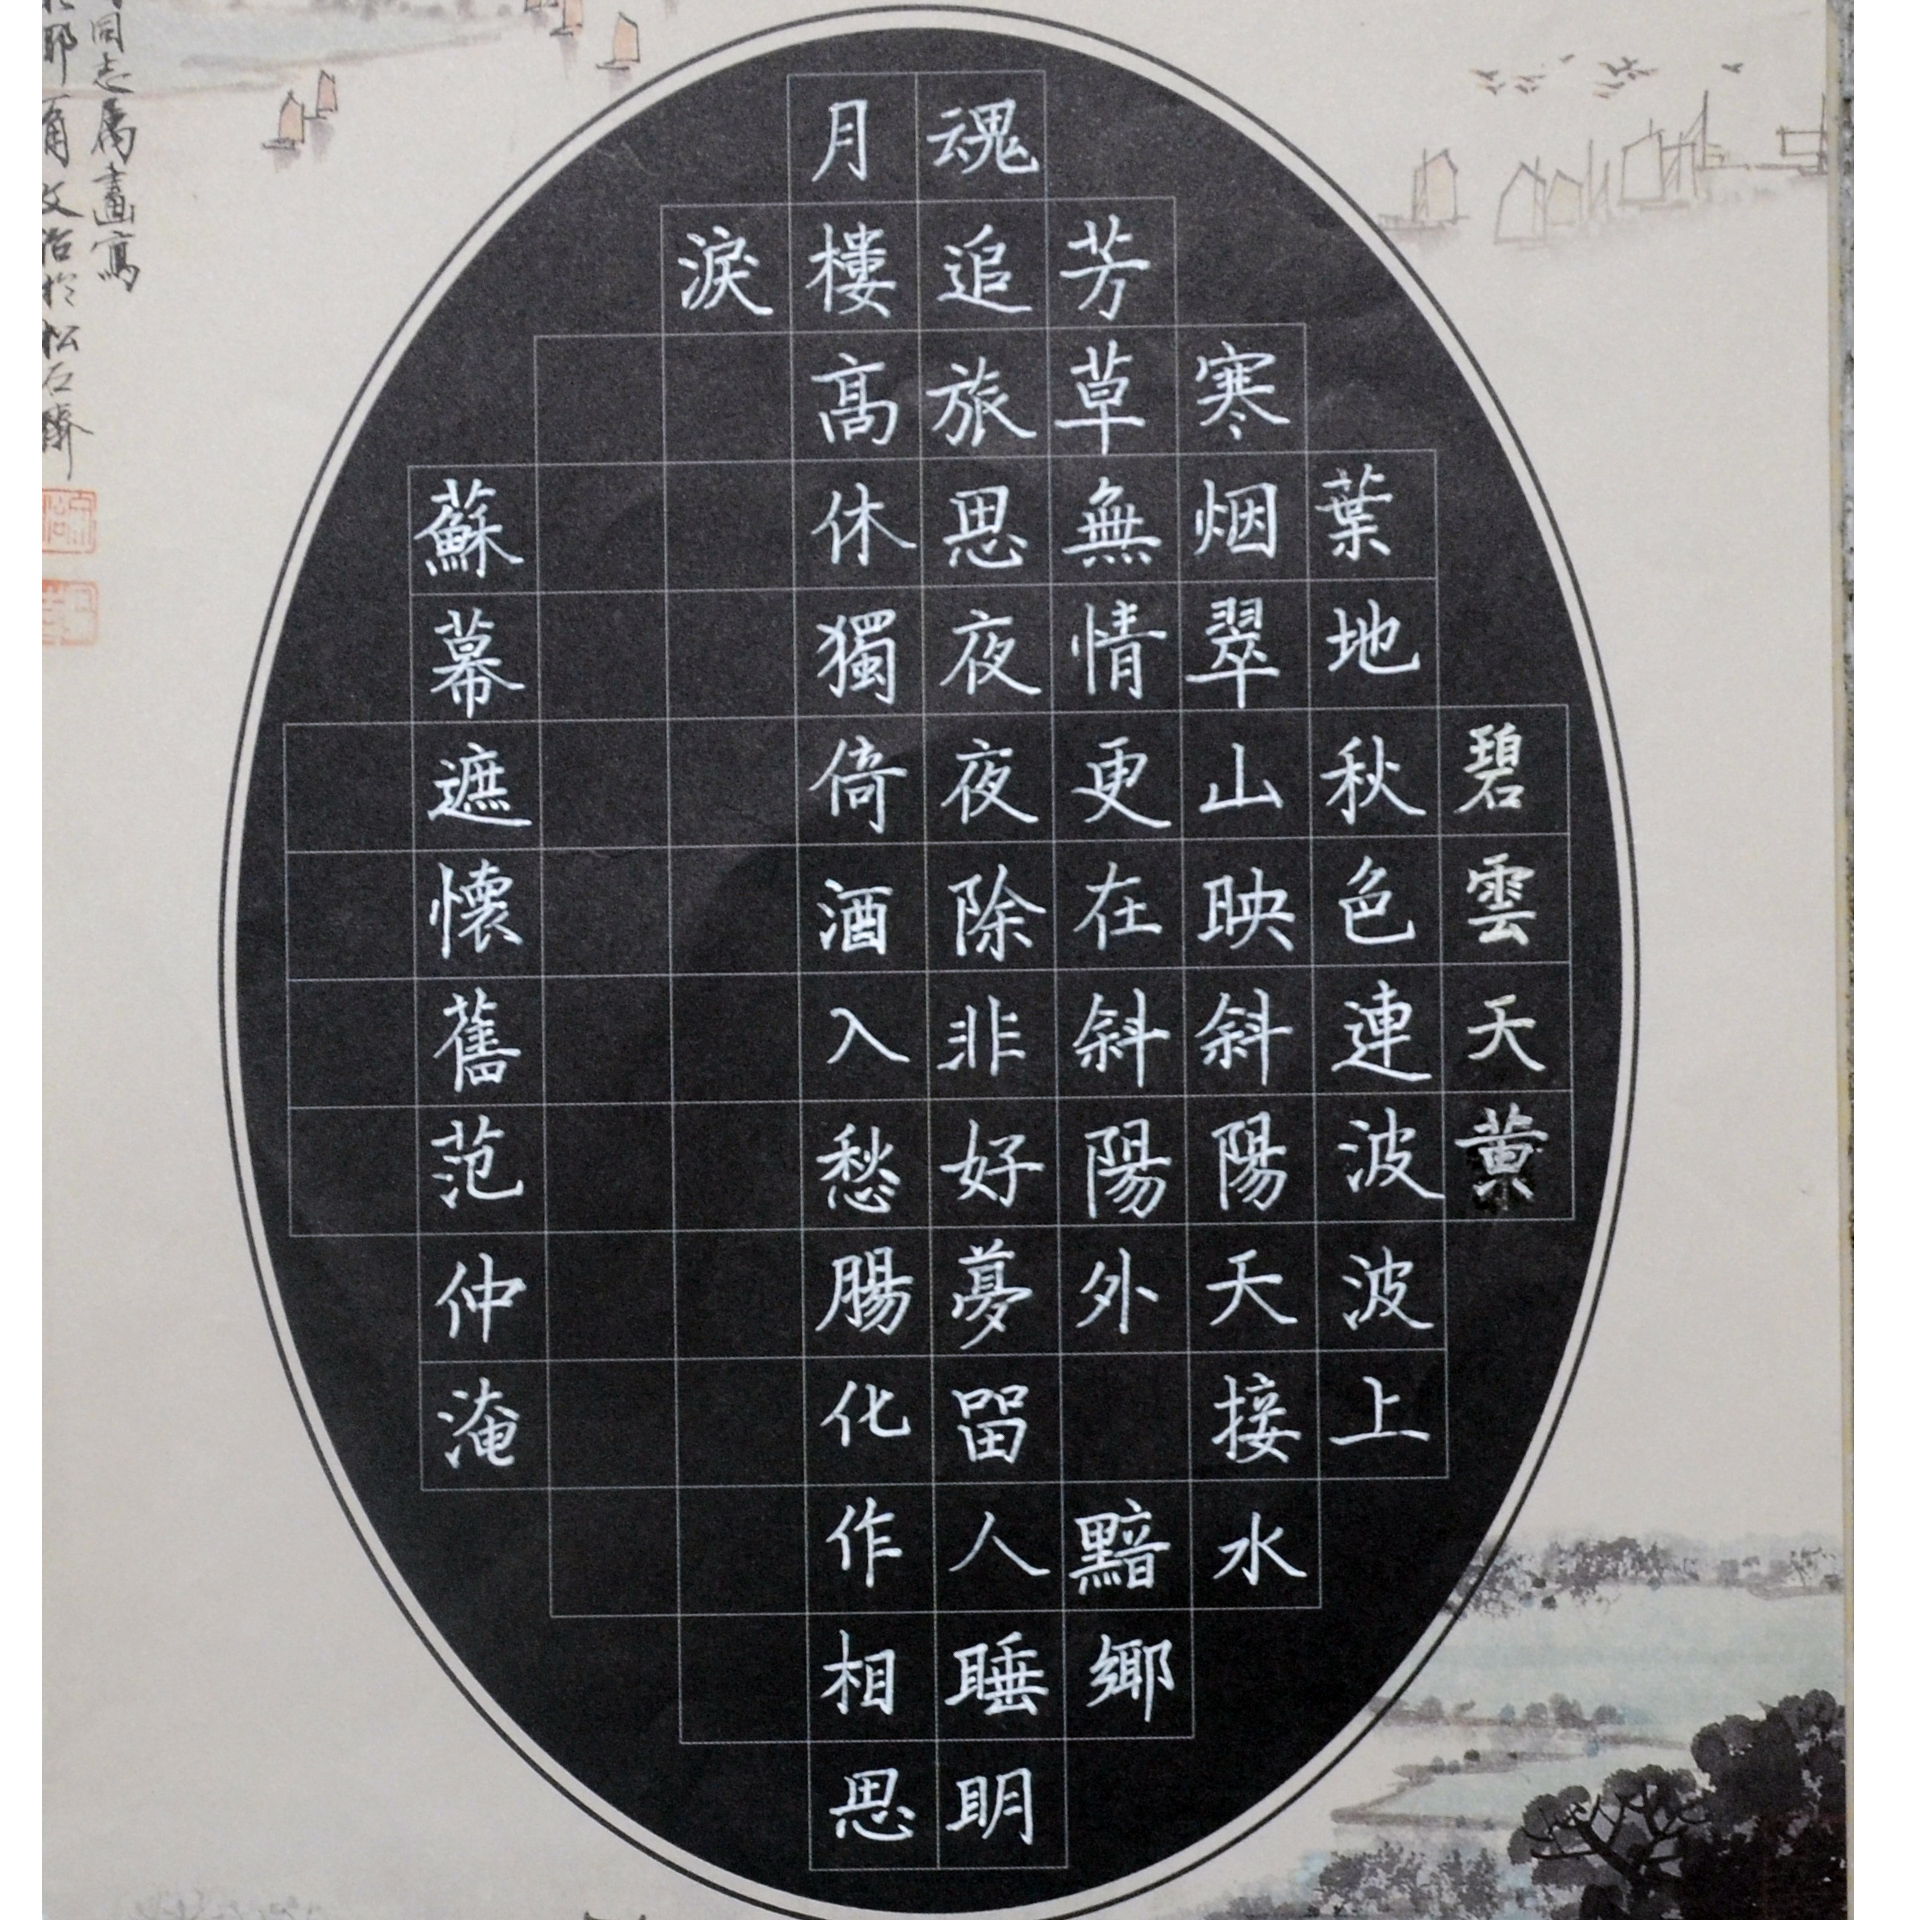 碧雲天黄
葉地秋色連波波上
寒烟翠山映斜陽天接水
芳草無情更在斜陽外黯鄉
魂追旅思夜夜除非好夢留人睡明
月樓高休獨倚酒入愁腸化作相思
淚
蘇幕遮懷舊范仲淹
同志属畫寫
文治於松石齋